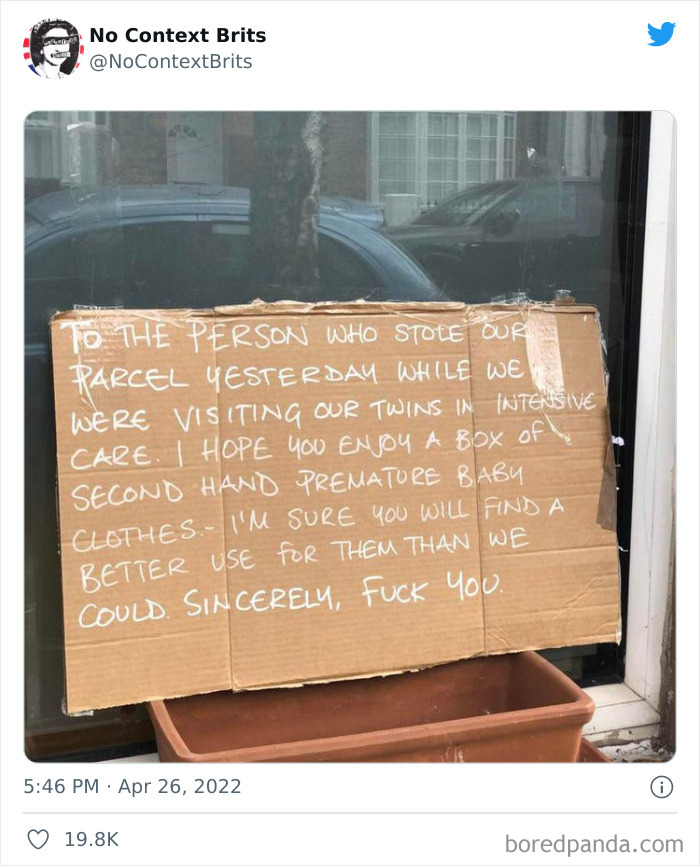 No Context Brits
@NoContextBrits
TO THE PERSON WHO STOLE OUR
PARCEL YESTERDAY WHILE WE
WERE VISITING OUR TWINS IN INTENSIVE
CARE. I HOPE YOU ENJOY A BOX OF
SECOND HAND PREMATURE BABY
CLOTHES.- I'M SURE YOU WILL FIND A
BETTER USE FOR THEM THAN WE
COULD. SINCERELY, FUCK YOU.
5:46 PM · Apr 26, 2022
19.8K
boredpanda.com